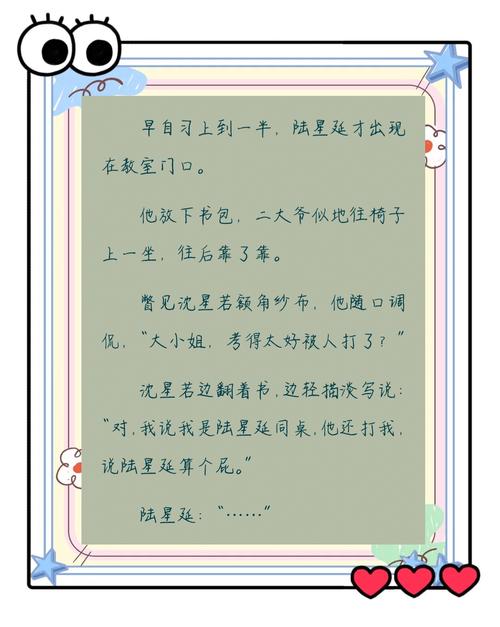 早自习上到一半，陆星延才出现
在教室门口。
他放下书包，二大爷似地往椅子
上一坐，往后靠了靠。
瞥见沈星若额角纱布，他随口调
侃，“大小姐，考得太好被人打了？”
沈星若边翻着书，边轻描淡写说：
“对，我说我是陆星延同桌，他还打我，
说陆星延算个屁。”
陆星延：“……”